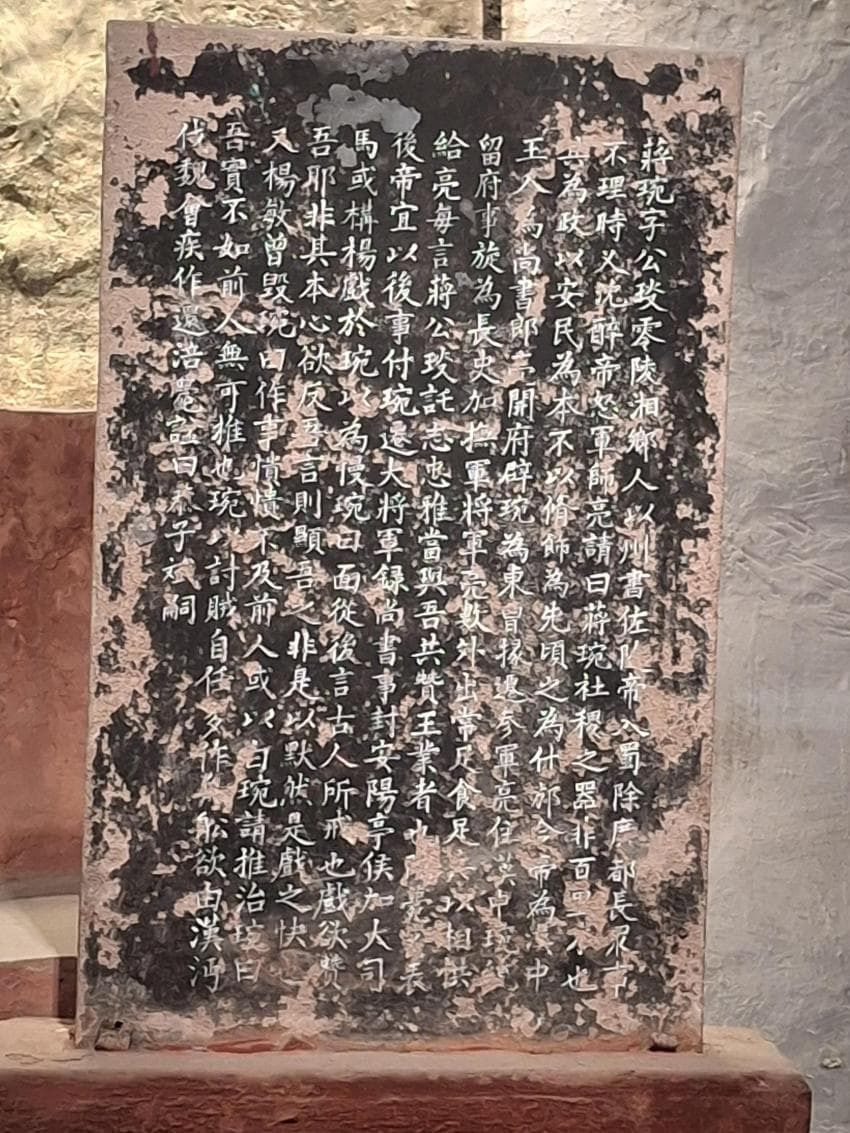 蔣琬字公琰零陵湘鄉人以州書佐隨帝入蜀除廣都長眾事
不理時又沈醉帝怒軍師亮請曰蔣琬社稷之器非百里之才也
其為政以安民為本不以脩飾為先頃之為什邡令帝為漢中
王入為尚書郎亮開府辟琬為東曹掾遷參軍亮住漢中琬統
留府事旋為長史加撫軍將軍亮數外出常足食足兵以相供
給亮每言蔣公琰託志忠雅當與吾共贊王業者也亮表
後帝宜以後事付琬還大將軍録尚書事封安陽亭侯加大司
馬或構楊戲於琬以為慢琬曰面從後言古人所戒也戲欲贊
吾耶非其本心欲反吾言則顯吾之非是以默然是戲之快
又楊敏曾毀琬曰作事憒憒不及前人或以白琬請推治琬曰
吾實不如前人無可推也琬以討賊自任多作舟舩欲由漢沔
伐魏會疾作還涪薨諡曰恭子斌嗣